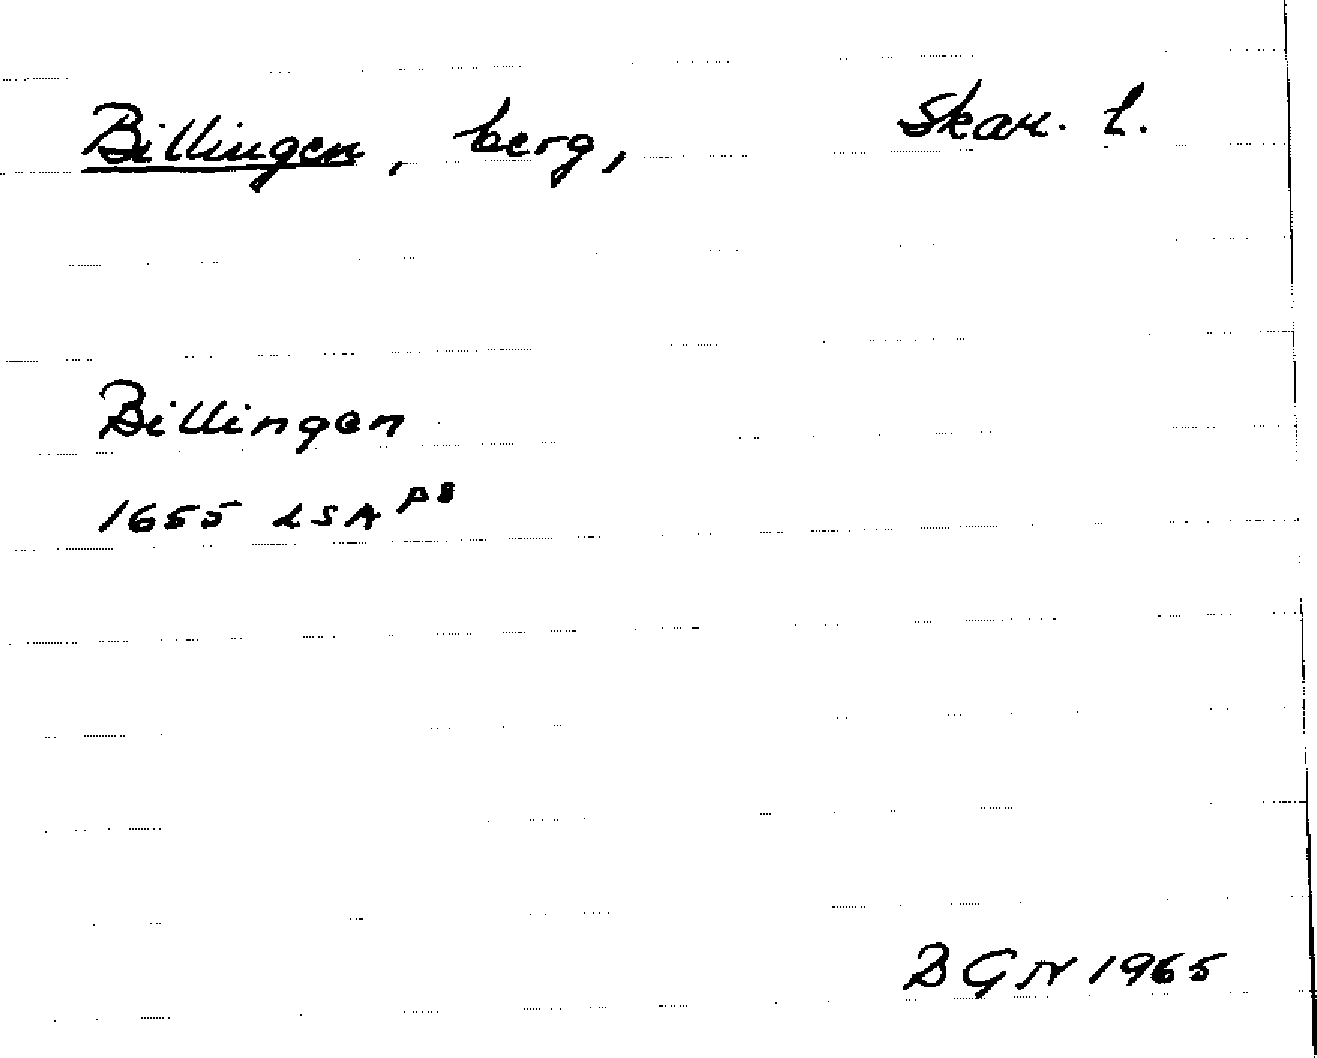 Billingen, berg, Skar. l.
Billingen
1655 LSA P8
BGN 1965